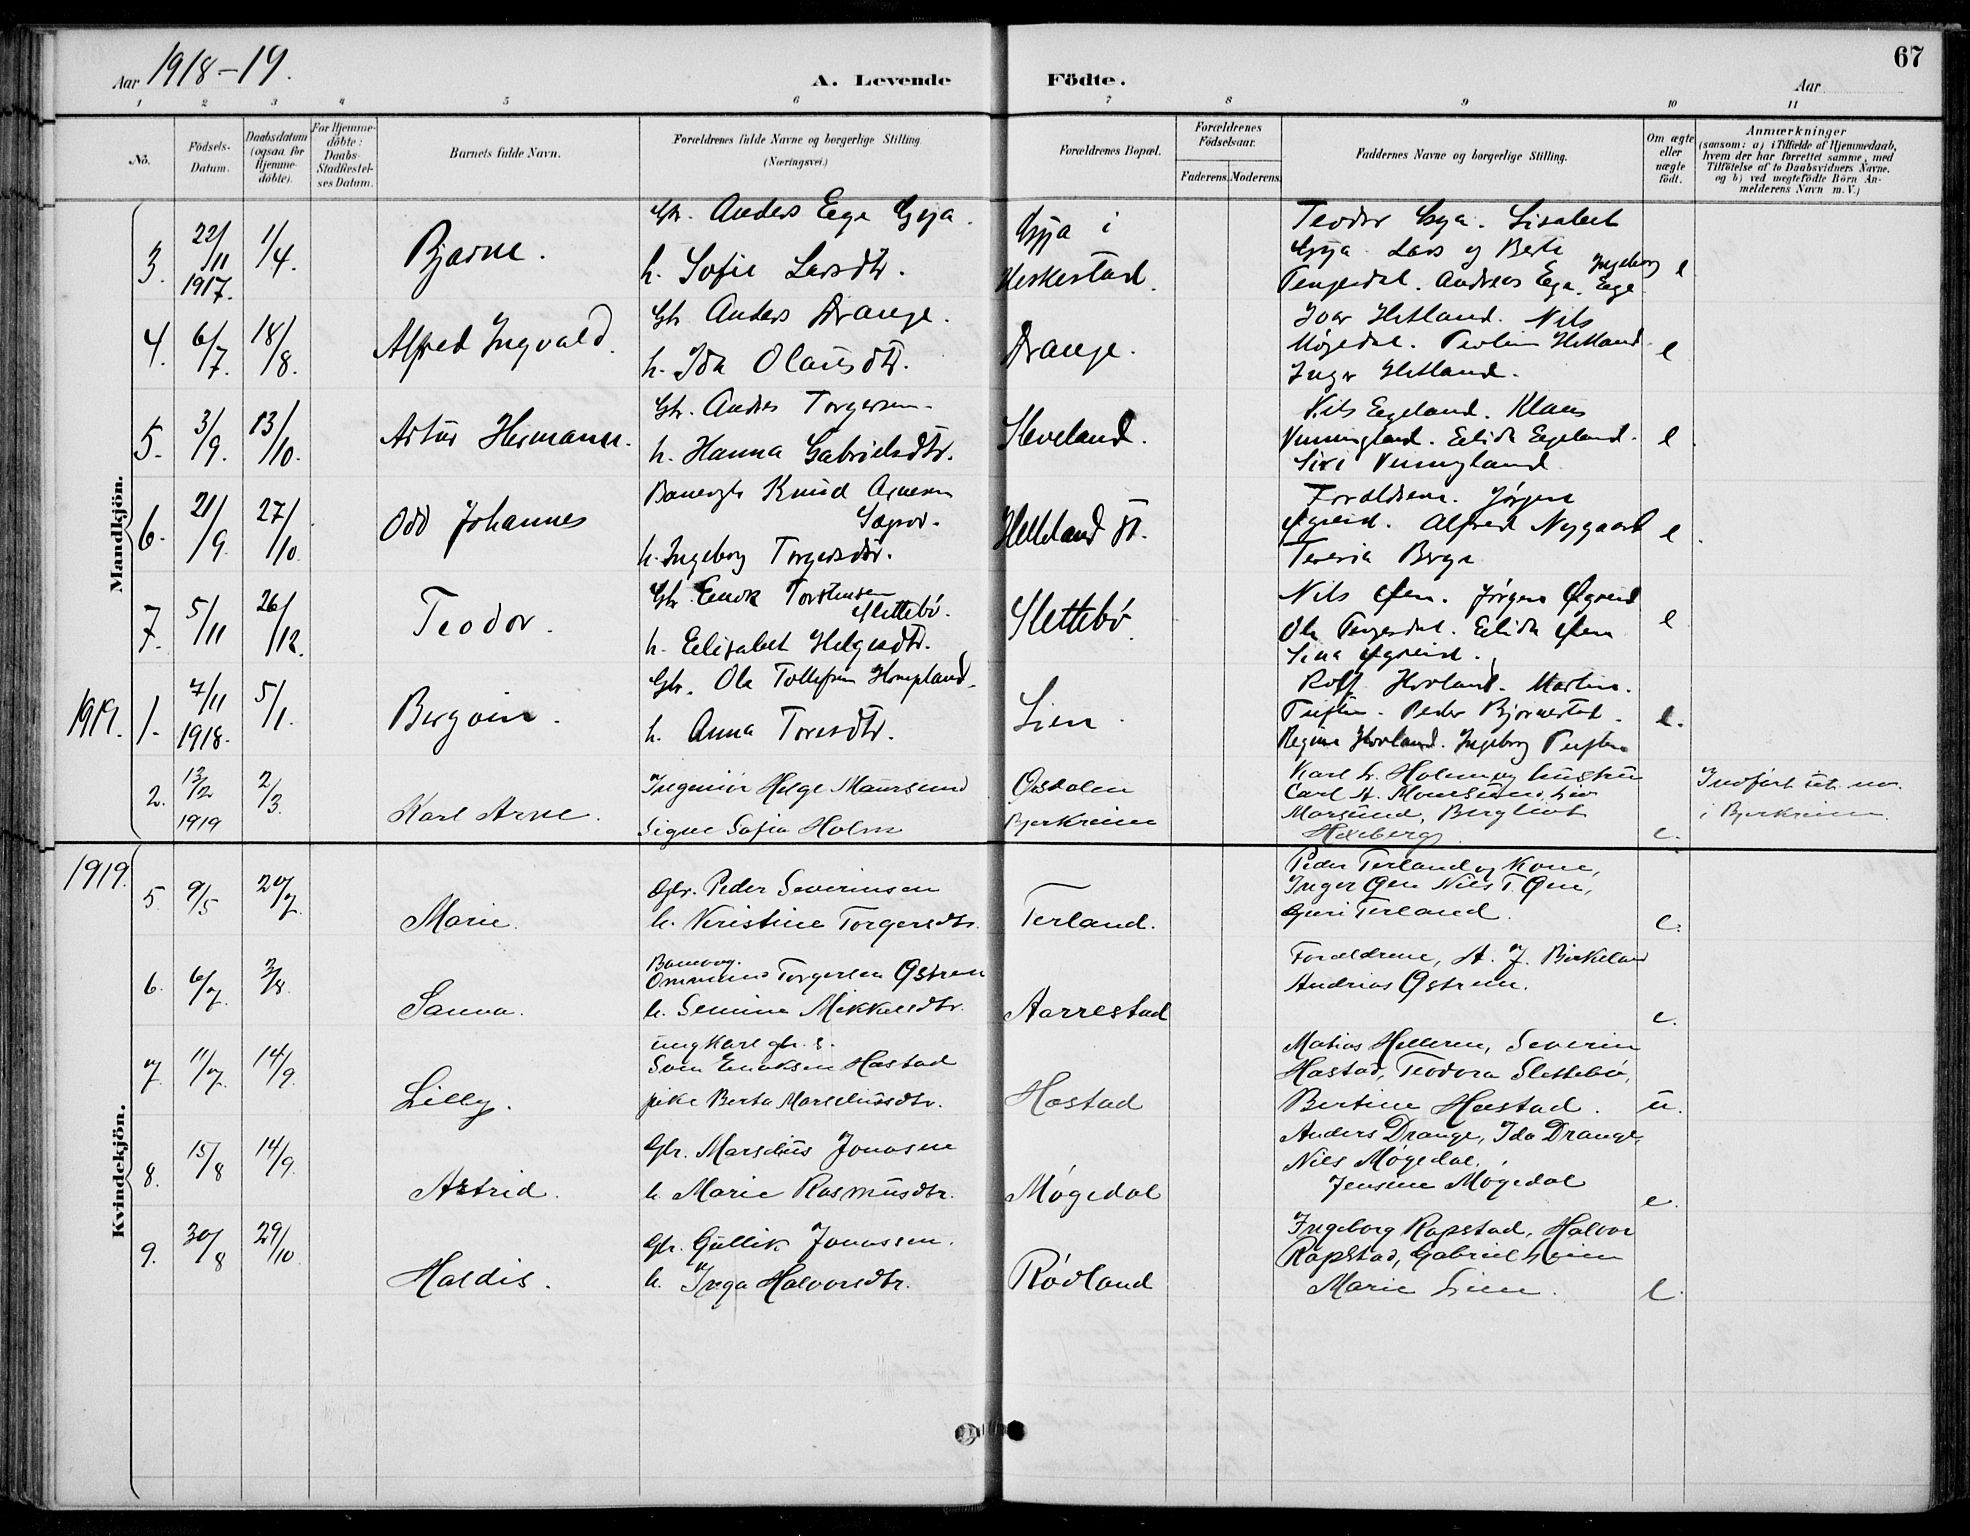 67
Aar 1918-19.
A. Levende Födte.
Aar
1 2 3 4 5 6 7 8 9 10 11
No.
Födsels-
Datum.
Daabsdatum
(ogsaa for
Hjemme-
döbte).
For Hjemme-
döbte:
Daabs-
Stadfæstel-
ses Datum.
Barnets fulde Navn.
Forældrenes fulde Navne og borgerlige Stilling.
(Næringsvei.)
Forældrenes Bopæl.
Forældrenes
Födselsaar.
Faderens. Moderens.
Faddernes Navne og borgerlige Stilling.
Om ægte
eller
uægte
födt.
Anmærkninger
(saasom: a) i Tilfælde af Hjemmedaab,
hvem der har forrettet samme, med
Tilföielse af to Daabsvidners Navne,
og b) ved uægtefödte Börn An-
melderens Navn m. V.)
Mandkjön.
3. 22/11 1917. 1/4. Bjarne.
Gbr. Anders Ege Gya.
h. Sofie Larsdtr.
Gya i
Heskestad.
Teodor Gya. Lisabet
Gya. Lars og Berte
Tengesdal. Andreas Ege. Ingeborg Ege
e
4. 6/7. 18/8. Alfred Ingvald.
Gbr. Anders Drange.
h. Ida Olausdtr.
Drange.
Ivar Hetland. Nils
Møgedal. Hetland
Inger Hetland.
e
5. 3/9. 13/10. Artur Hermann.
Gbr. Andres Torgersen.
h. Hanna Gabrielsdtr.
Sleveland.
Nils Eegeland. Klaus
Vinningland. Elida Eegeland.
Siri Vinningland
e
6. 21/9. 27/10. Odd Johannes
Banevgt. Knud Agnesen
h. Ingeborg Torgersdtr.
Helleland st.
Forældrene. Jørgen
Øgreid. Alfred Nygaard
Berge
e
7. 5/11 26/12. Teodor.
Gbr. Enok Torstensen
Slettebø.
h. Elisabet Helgesdtr.
Slettebø
Nils Øen. Jørgen Øgreid
Ole Tengesdal. Elida Øen
Sina Øgreid.
e
1919. 1. 7/11 1918. 5/1. Bergvin.
Gbr. Ola Tollefsen Hompland.
h. Anna Toresdtr.
Lien.
Rolf Hovland. Martin
Tuften. Peder Bjørnestad.
Regine Hovland. Ingeborg Tuften
e.
2. 13/2 1919 2/3. Karl Arne.
Ingeniør Helge Maursund
Signe Sofia Holm
Ørsdalen
Bjerkreim
Karl L. Holm og hustru
Carl A. Maursund, Liv
Marsund, Bergliot
Hexeberg.
e.
Indført uten no.
i Bjerkreim.
Kvindekjön.
1919. 5. 9/5 20/7. Marie.
Gbr. Peder Severinsen
h. Kristine Torgersdtr.
Terland.
Peder Terland og Kone,
Inger Øen Niels T. Øen,
Guri Terland.
e.
6. 6/7. 3/8. Sanna.
Banevog.
Ommund Torgersen Østrem
h. Semine Mikkelsdtr.
Aarrestad
Forældrene, A. J. Birkeland
Andrias Østrem.
e.
7. 11/7. 14/9. Lilly.
ungkarl gbr. s.
Sven Enoksen Hæstad
pike Berta Marseliusdtr.
Hæstad
Matias Helleren, Severin
Hæstad, Teodora Slettebø,
Bertine Hæstad.
u.
8. 15/8 14/9. Astrid.
Gbr. Marselius Jonasen
h. Marie Rasmusdtr.
Møgedal
Anders Drange, Ida Drange,
Niels Møgedal,
Jensine Møgedal
e.
9. 30/8 29/10. Haldis.
Gbr. Gullik Jonassen.
h. Inga Halvorsdtr.
Rødland
Ingeborg Rapstad, Halvor
Rapstad, Gabriel Lien
Marie Lien.
e.